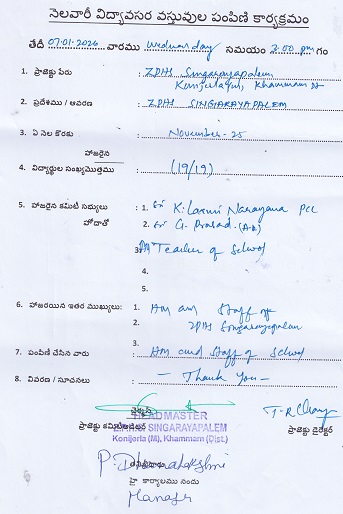 నెలవారీ విద్యావసర వస్తువుల పంపిణి కార్యక్రమం
తేదీ 07-01-2026 వారము Wednesday సమయం 3:00 pm గం
1. ప్రాజెక్టు పేరు : ZPHS Singarayapalem,
Konijerla(M), Khammam Dt
2. ప్రదేశము / ఆవరణ : ZPHS SINGARAYAPALEM
3. ఏ నెల కొరకు : November-25
హాజరైన
4. విద్యార్థుల సంఖ్యమొత్తము : (19/19)
5. హాజరైన కమిటి సభ్యులు : 1. Sri K. Laxmi Narayana PCC
హోదాతో 2. Sri G. Prasad.
3. PA Teacher of School
4.
5.
6. హాజరయిన ఇతర ముఖ్యులు: 1. HM and Staff of
2. ZPHS Singarayapalem
3.
7. పంపిణి చేసిన వారు : HM and Staff of School
8. వివరణ / సూచనలు : — Thank You —
ప్రాజెక్టు కమిటి
ప్రాజెక్టు డైరెక్టర్
HEADMASTER
Z.P.H.S. SINGARAYAPALEM
Konijerla (M), Khammam (Dist.)
P. Dhanalakshmi
కార్యాలయము నందు
Manager